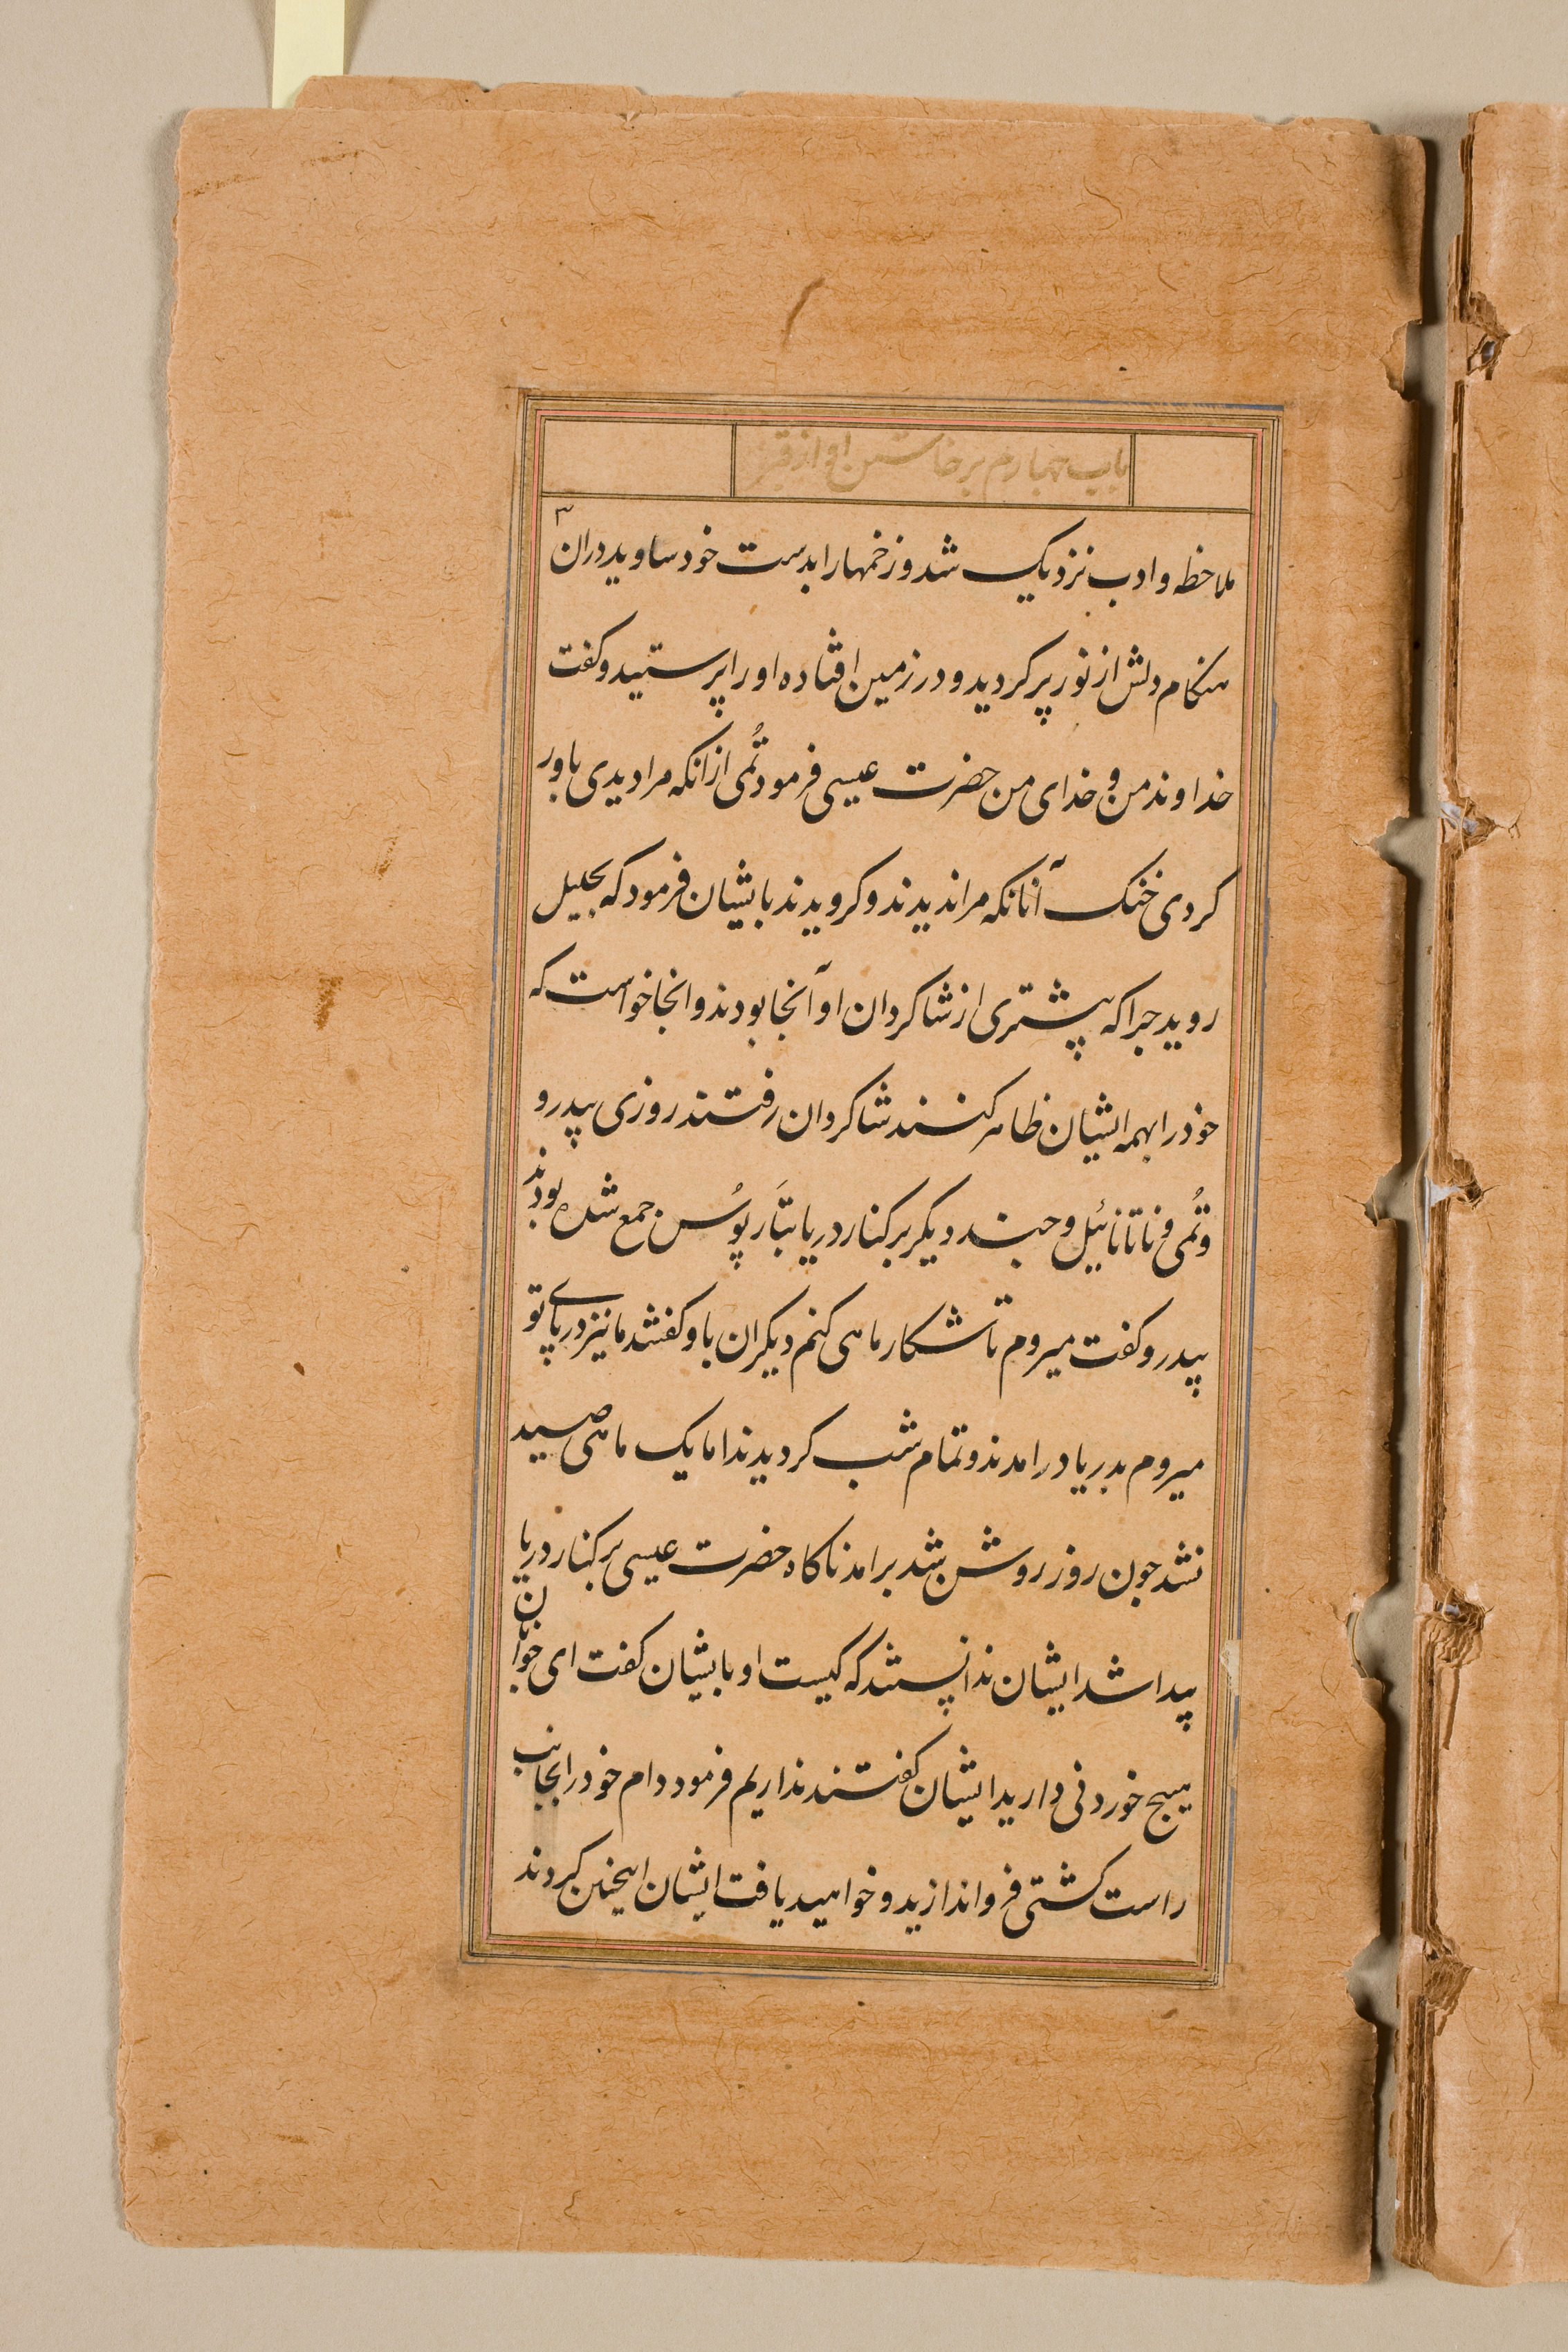 باب چهارم برخاستن او از قبر
ملاحظه و ادب نزدیک شد و زخمها را بدست خود ساوید دران
هنکام دلش از نور پر کردید و در زمین افتاده او را پرستید و کفت
خداوند من و خدای من حضرت عیسی فرمود تُمی ازانکه مرا دیدی باور
کردی خنک آنانکه مرا ندیدند و کرویدند بایشان فرمود که بجلیل
روید جراکه پیشتری از شاکردان او آنجا بودند و انجا خواست که
خود را بهمه ایشان ظاهر کنند شاکردان رفتند روزی پیدرو
و تُمی و ناتانائیل و جند دیکر بر کنار دریا تَبَارپُوس جمع شده بودند
پیدرو کفت میروم تا شکار ماهی کنم دیکران باو کفتند ما نیز در پای تو
میروم بدریا در امدند و تمام شب کردیدند اما یک ماهی صید
نشد جون روز روشن شد برامد ناکاه حضرت عیسی بر کنار دریا
پیدا شد ایشان ندانستند که کیست او بایشان کفت ای جوانان
هیج خوردنی دارید ایشان کفتند نداریم فرمود دام خود را بجانب
راست کشتی فرو اندازید و خواهید یافت ایشان اینجنین کردند